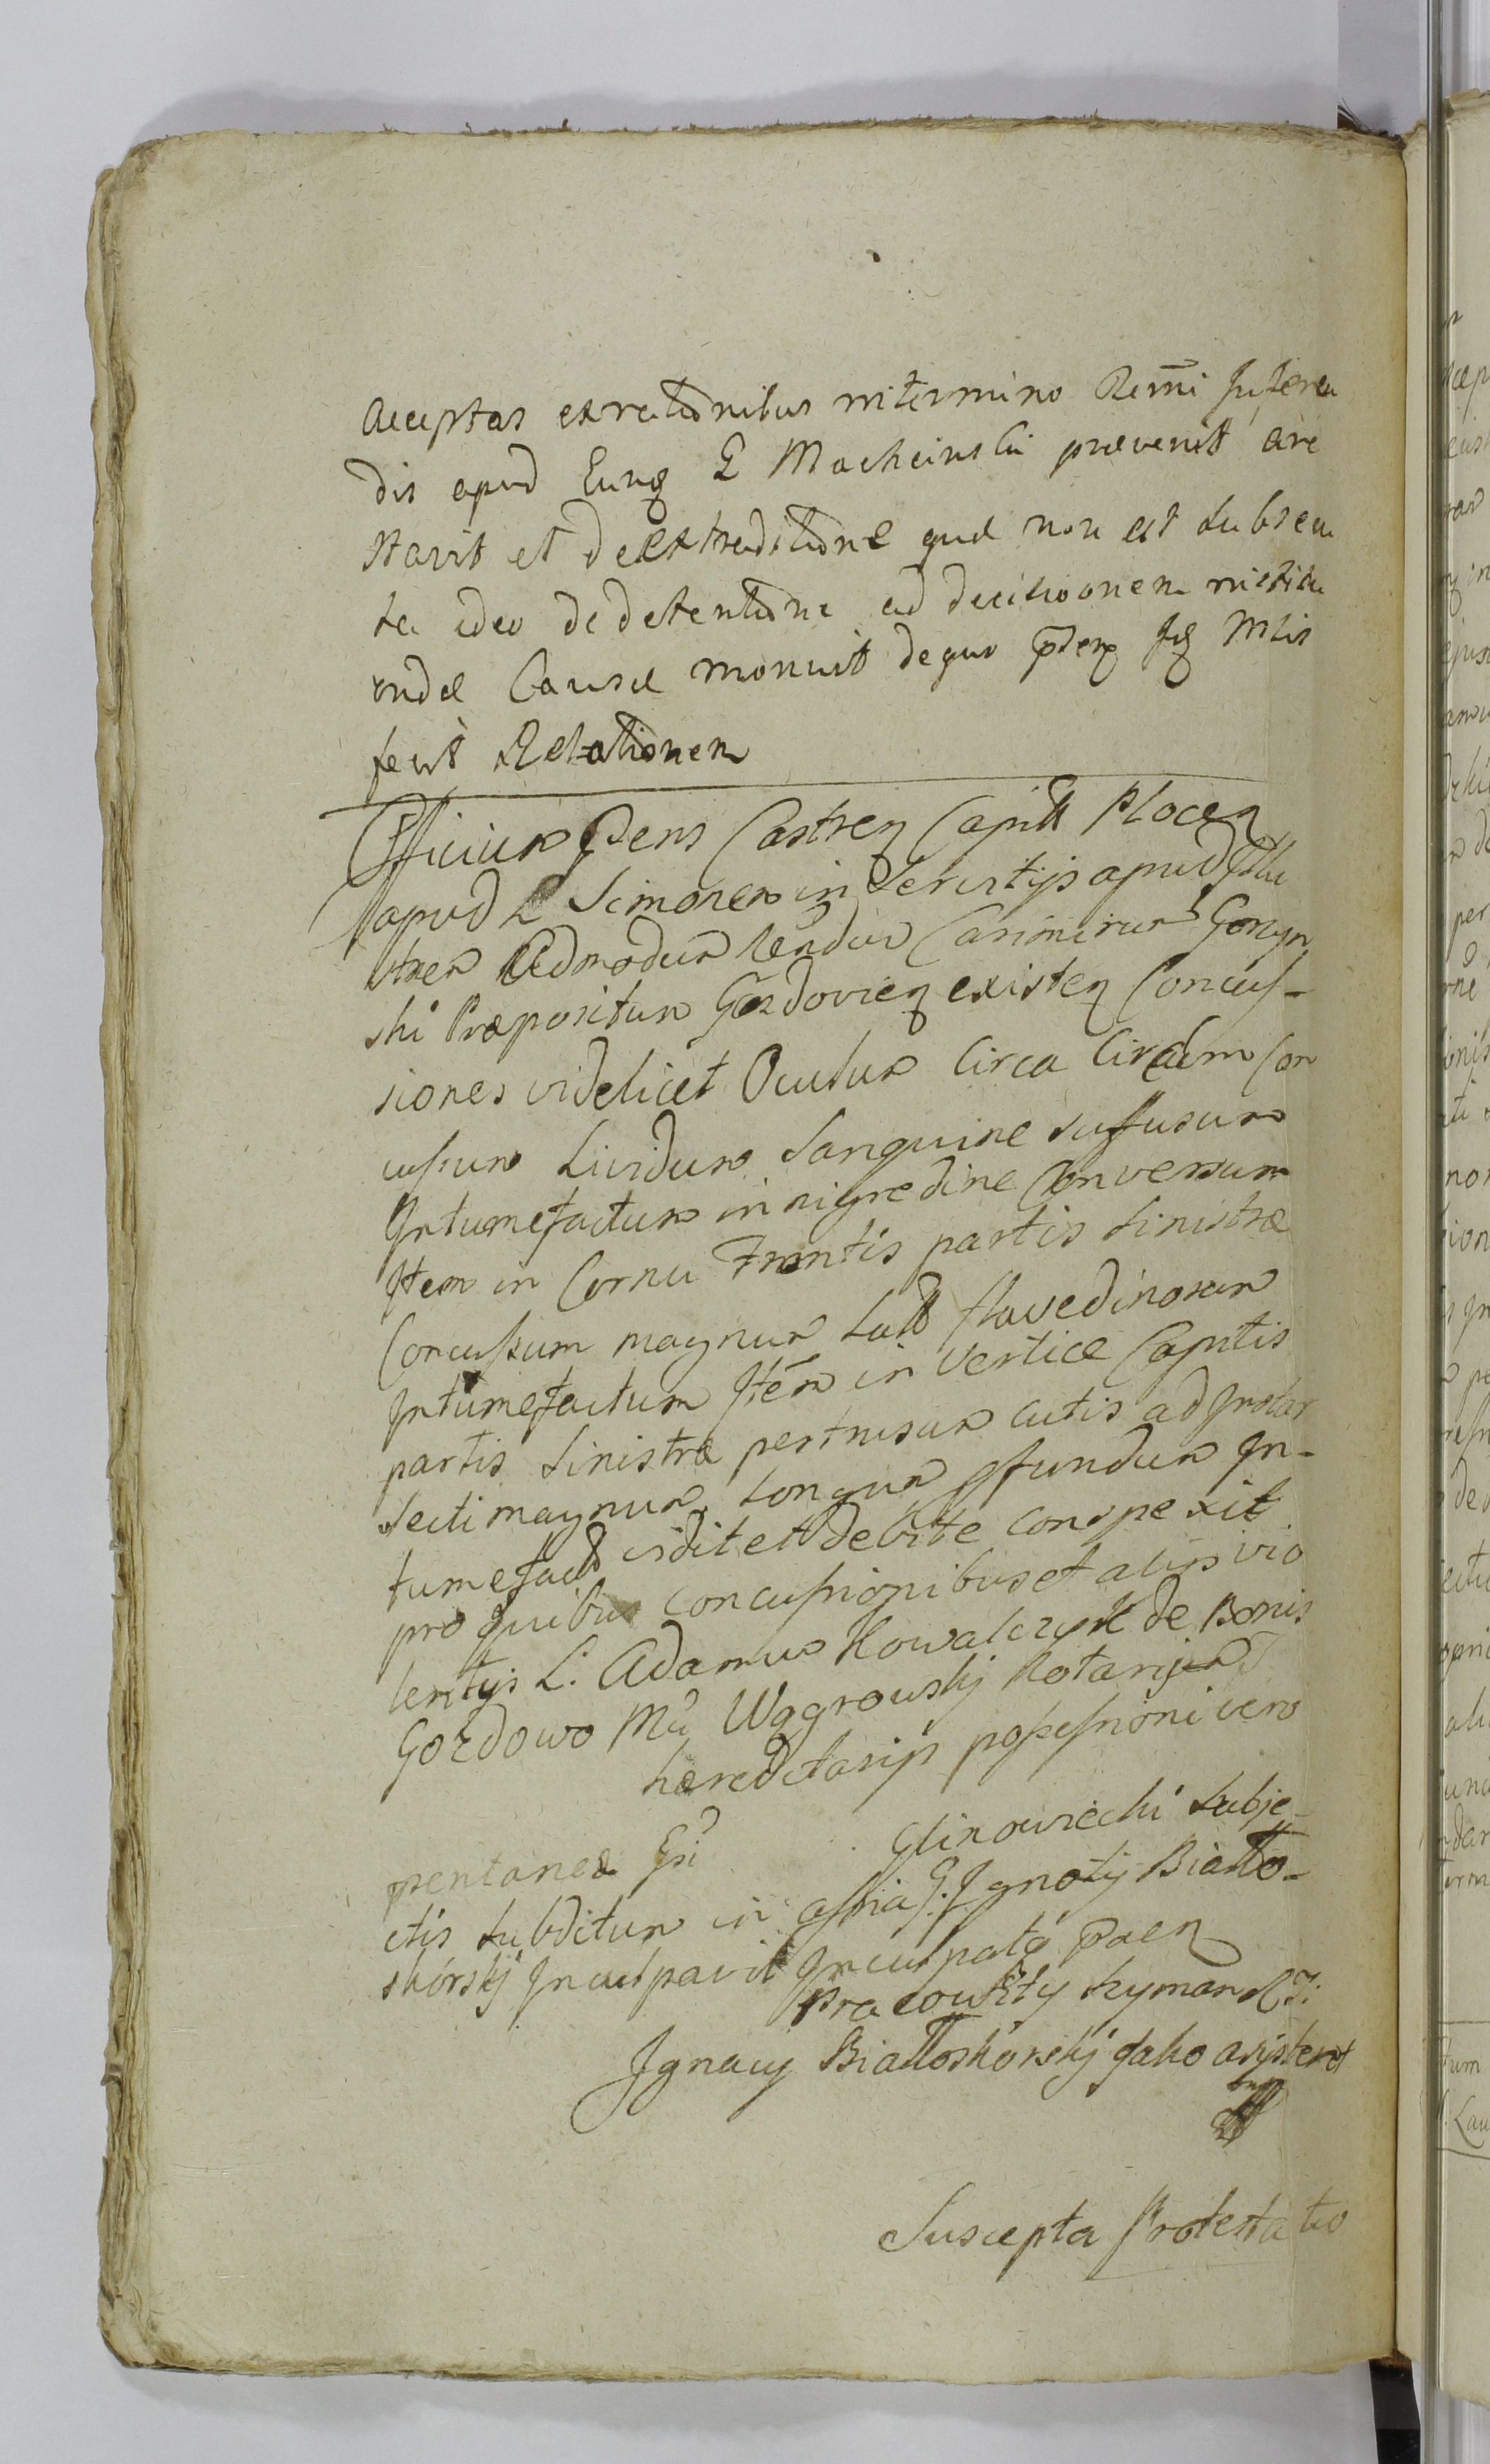 acceptas ex rationibus in termino Remi Inferen
dis apud Eunq G Macheinski praevenit are
stavit et de extraditione quae non est subsecu
ta ideo de detentione ad decisionem institu
endae Causae monuit de quo pden Jq Mlis
fecit Relationem
Officium Pens Castren Capitt Plocen
apud L Simonem in Servitijs apud Illu
strem Admodum Rendum Casimirum Gorczyn
ski Praepositum Gozdovien existen Concus-
siones videlicet Oculum Circa Circulum Con
cussum Lividum Sanguine suffusum
Intumefactum in nigredine Conversum
Item in Cornu Frontis partis sinistrae
Concussum magnum Satt flavedinosum
Intumefactum Item in Vertice Capitis
partis Sinistrae pertusum cutis ad Instar
Secti magnum, Longum pfundum In-
tumefact vidit et debite conspexit
pro quibus concussionibus et alijs vio
lentijs L. Adamum Kowalczyk de Bonis
Gozdowo Mci Wągrowskj Notarij
haereditarijs possessioni vero
pentanea Gsi Glinowiecki Subje-
ctis subditum in assia G. Ignatij Biatto-
skórskj Inculpavit Inculpato paen
Pracowity Szyman
Ignacy Biattoskórskj Jako asystent
Suscepta Protestatio